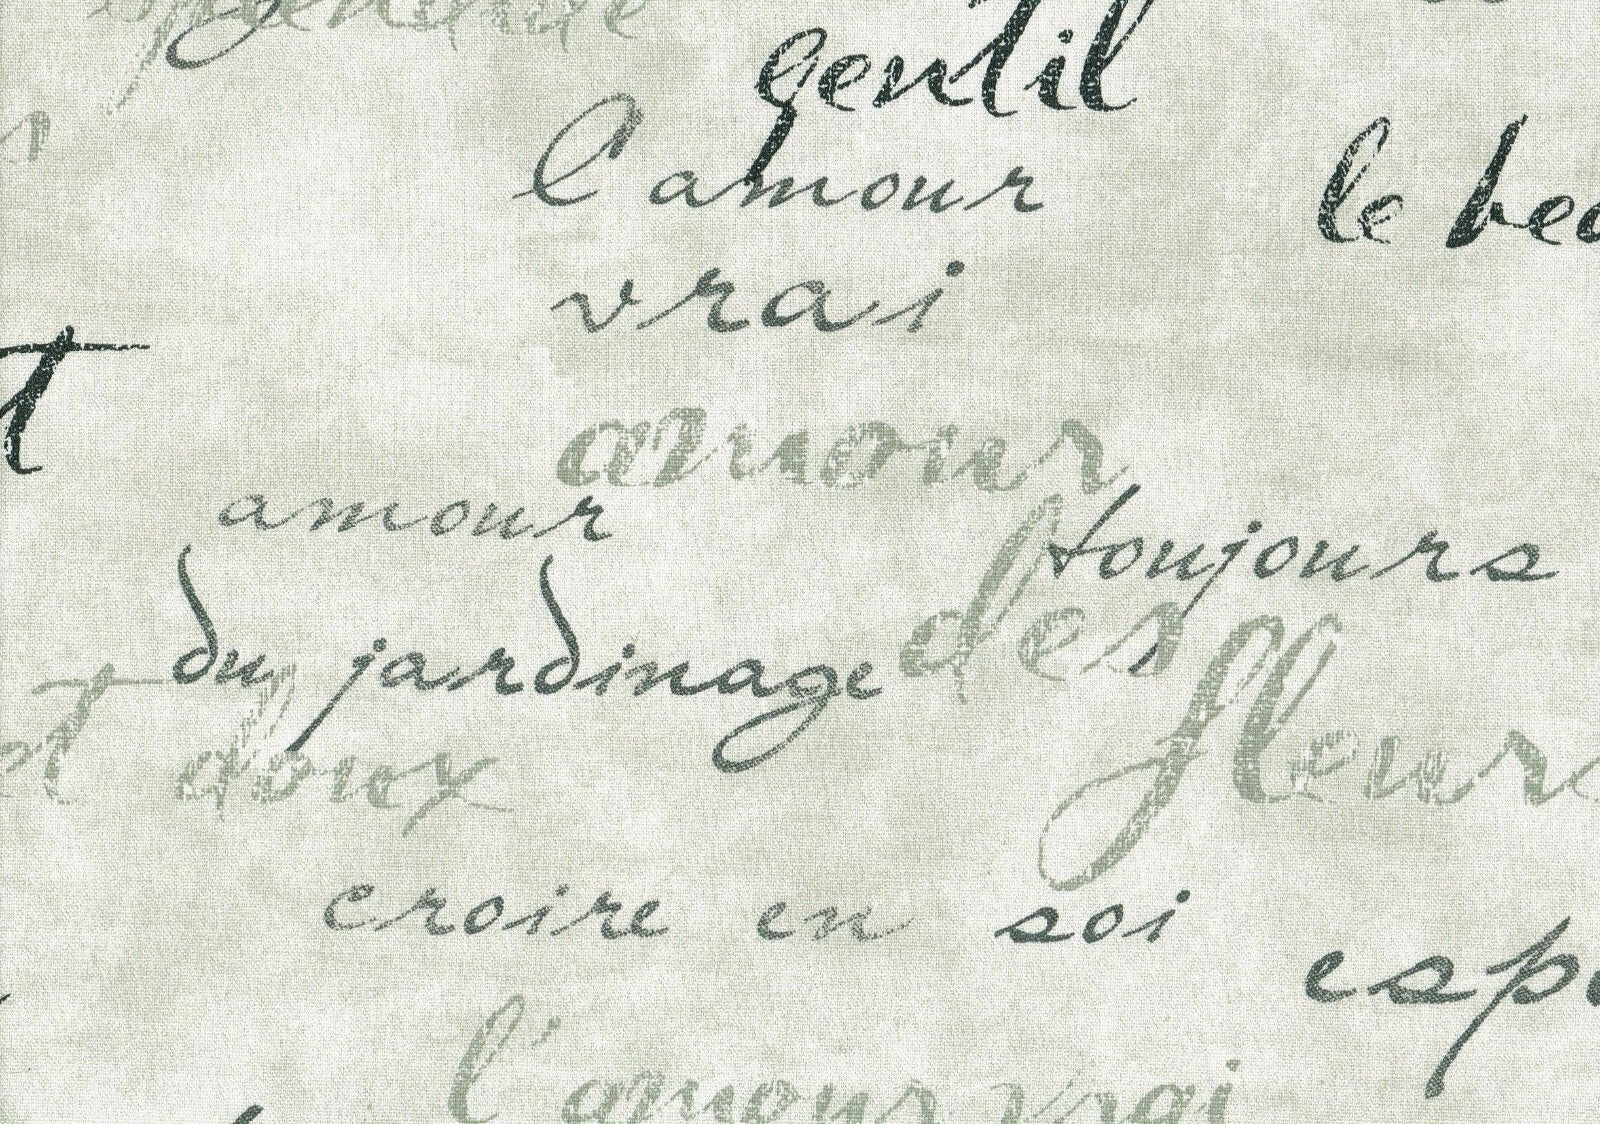 gentil
l'amour
le
vrai
amour
amour
toujours
des
du jardinage
fleurs
doux
croire en soi
l'amour vrai